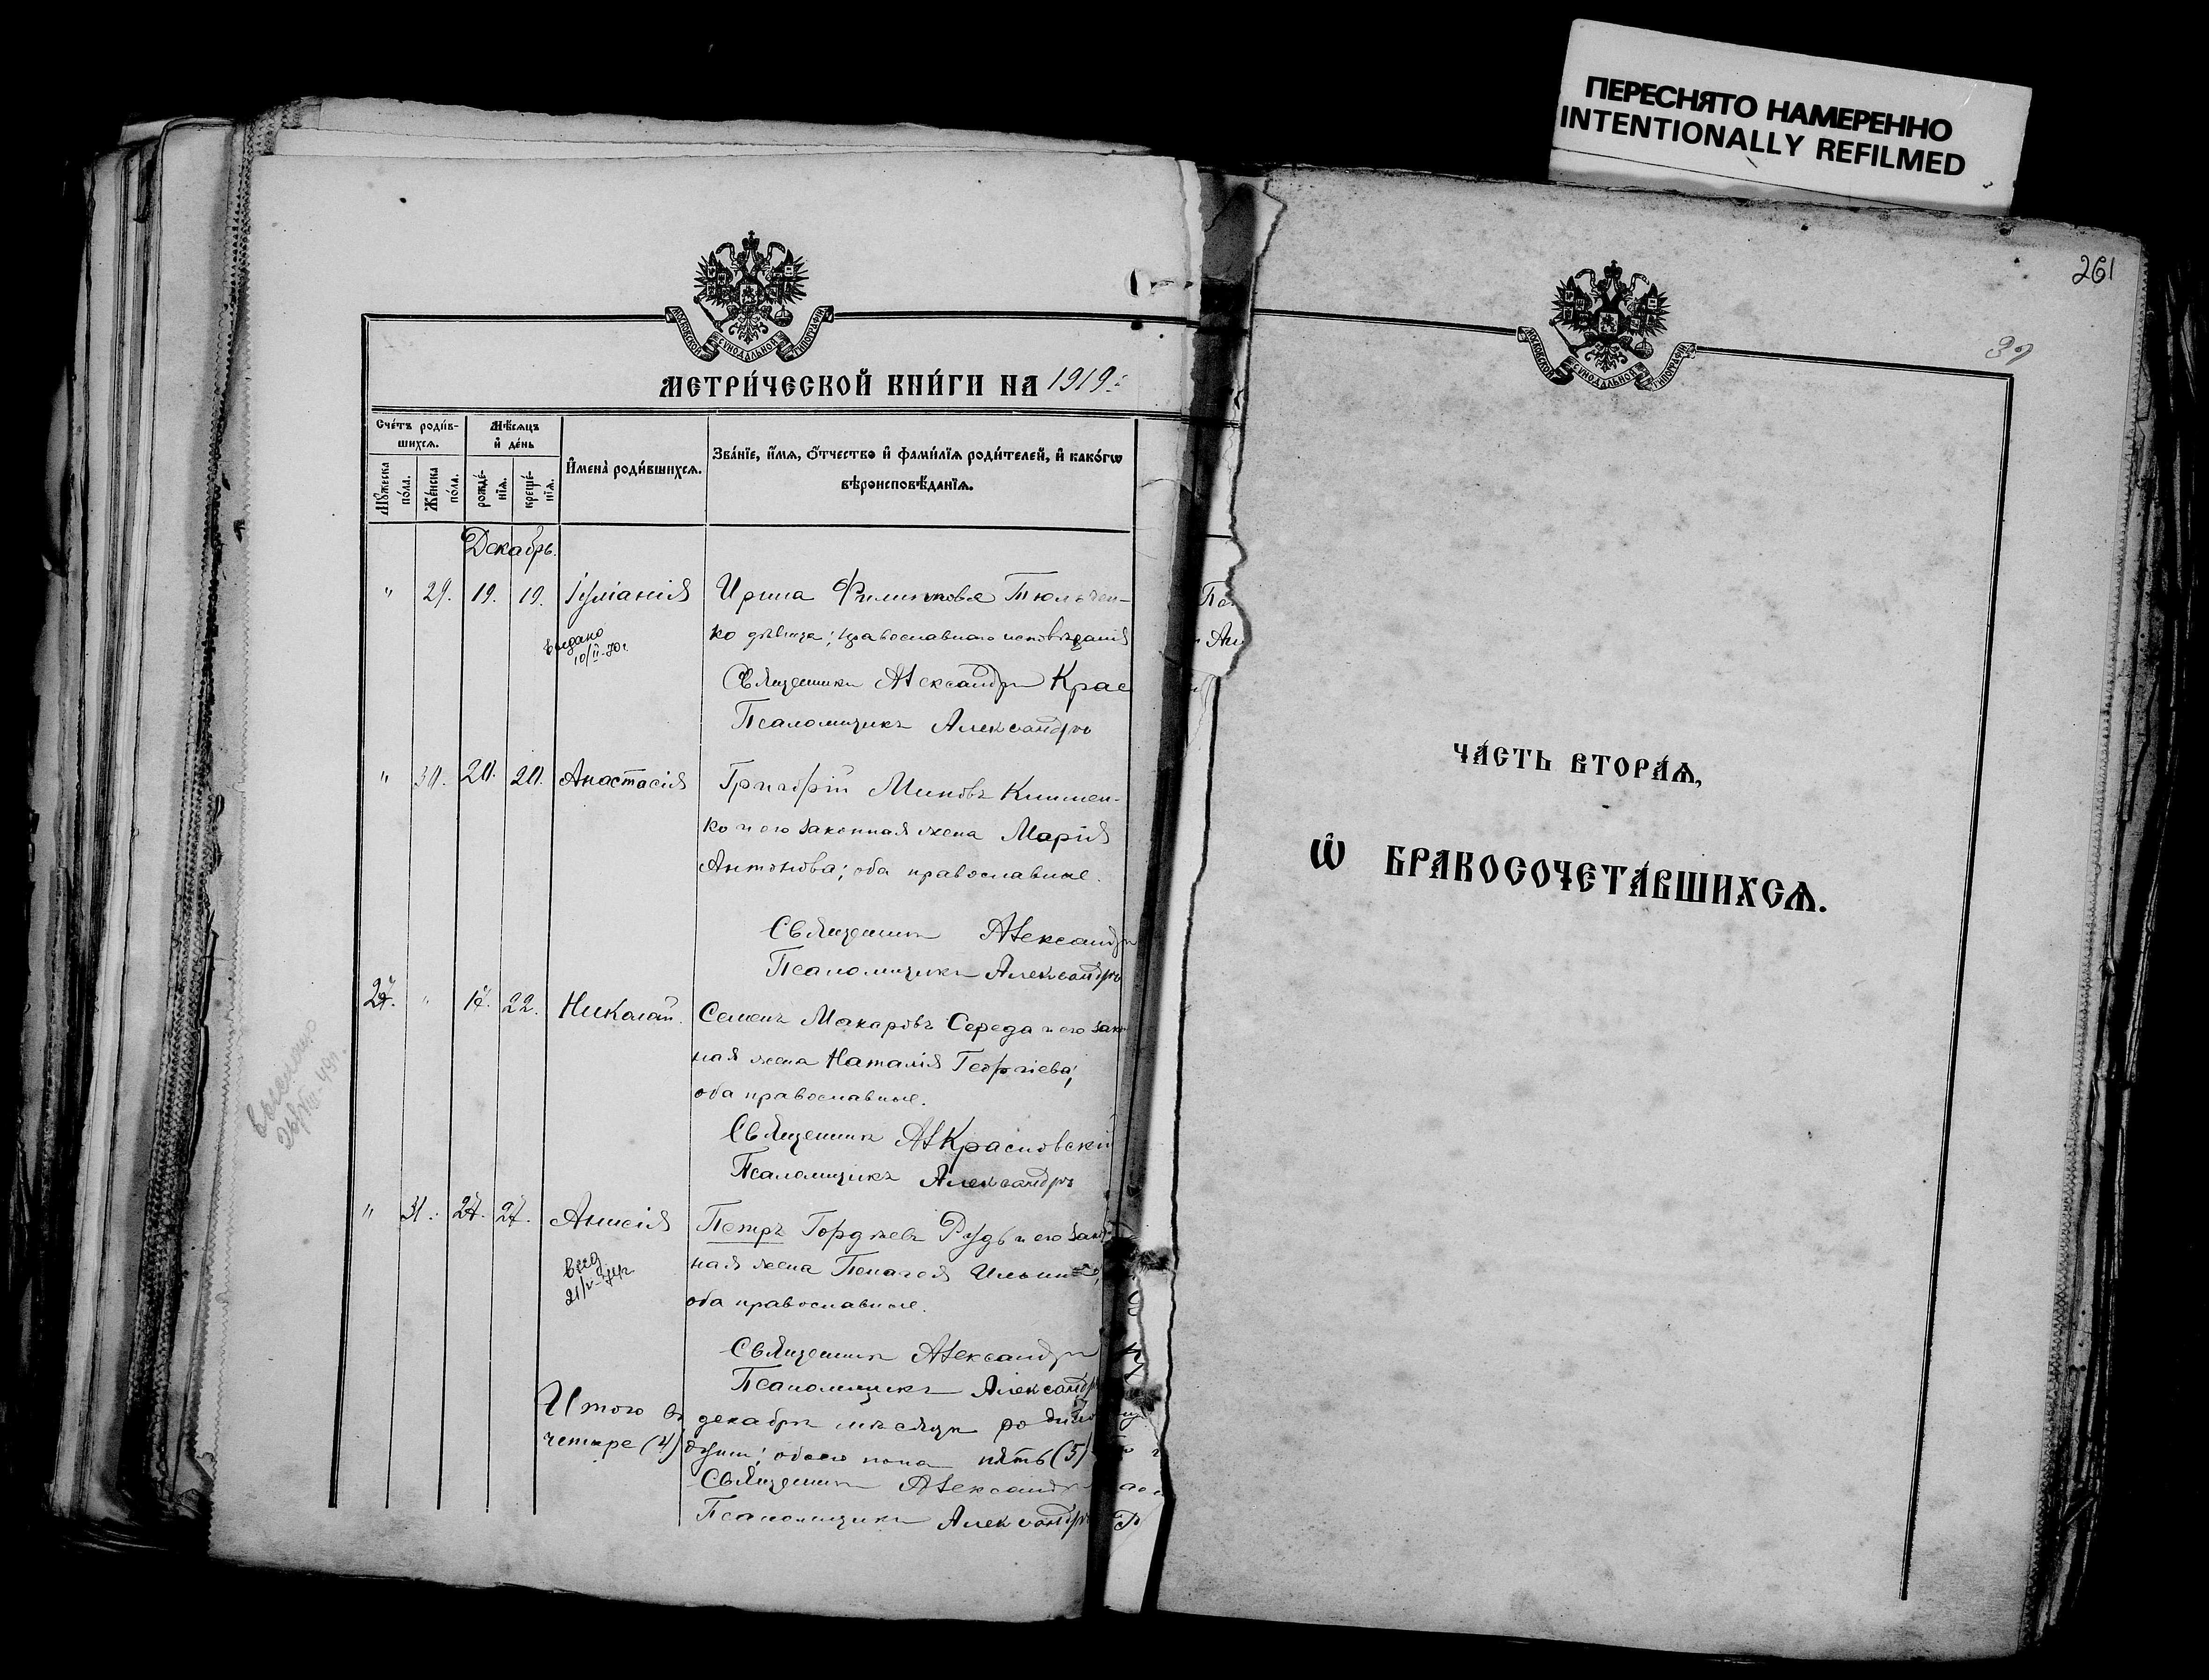 ПЕРЕСНЯТО НАМЕРЕННО
INTENTIONALLY REFILMED
261
39
МОСКОВСКОЙ СѴНОДАЛЬНОЙ ТИПОГРАФІИ
МЕТРИ́ЧЕСКОЙ КНИ́ГИ НА 1919
Сче́тъ роди́в-
шихсѧ.
Мꙋ́жеска по́ла.
Же́нска по́ла.
Мѣ́сѧцъ
и҆ де́нь
рожде́-
нїѧ.
креще́-
нїѧ.
И҆мена̀ роди́вшихсѧ.
Зва́нїе, и҆́мѧ, ѻ҆́тчество и҆ фами́лїѧ роди́телей, и҆ како́гѡ
вѣроисповѣ́данїѧ.
Декабрь.
" 29. 19. 19. Іуліанія Ирина Филиппова Тюльчен-
ко дѣвица; православнаго исповѣданія
выдано
10/II-70г.
Священникъ Александръ Крас
Псаломщикъ Александръ
" 30. 20. 20. Анастасія Григорій Миновъ Климен-
ко и его законная жена Марія
Антонова; оба православные.
Священникъ Александръ
Псаломщикъ Александръ
27. " 17. 22. Николай. Семенъ Макаровъ Середа и его зако
ная жена Наталія Георгіева;
оба православные.
Священникъ Красновскій
Псаломщикъ Александръ
" 31. 27. 27. Анисія Петръ Гордѣевъ Рудь и его закон
ная жена Пелагея Ильина;
оба православные.
выд.
Священникъ Александръ
Псаломщикъ Александръ
Итого въ декабрѣ мѣсяцѣ
четыре (4) обоего пола пять (5)
Священникъ Александръ
Псаломщикъ Александръ
МОСКОВСКОЙ СѴНОДАЛЬНОЙ ТИПОГРАФІИ
ЧА́СТЬ ВТОРА́Ѧ,
Ѡ҆ БРАКОСОЧЕТА́ВШИХСѦ.